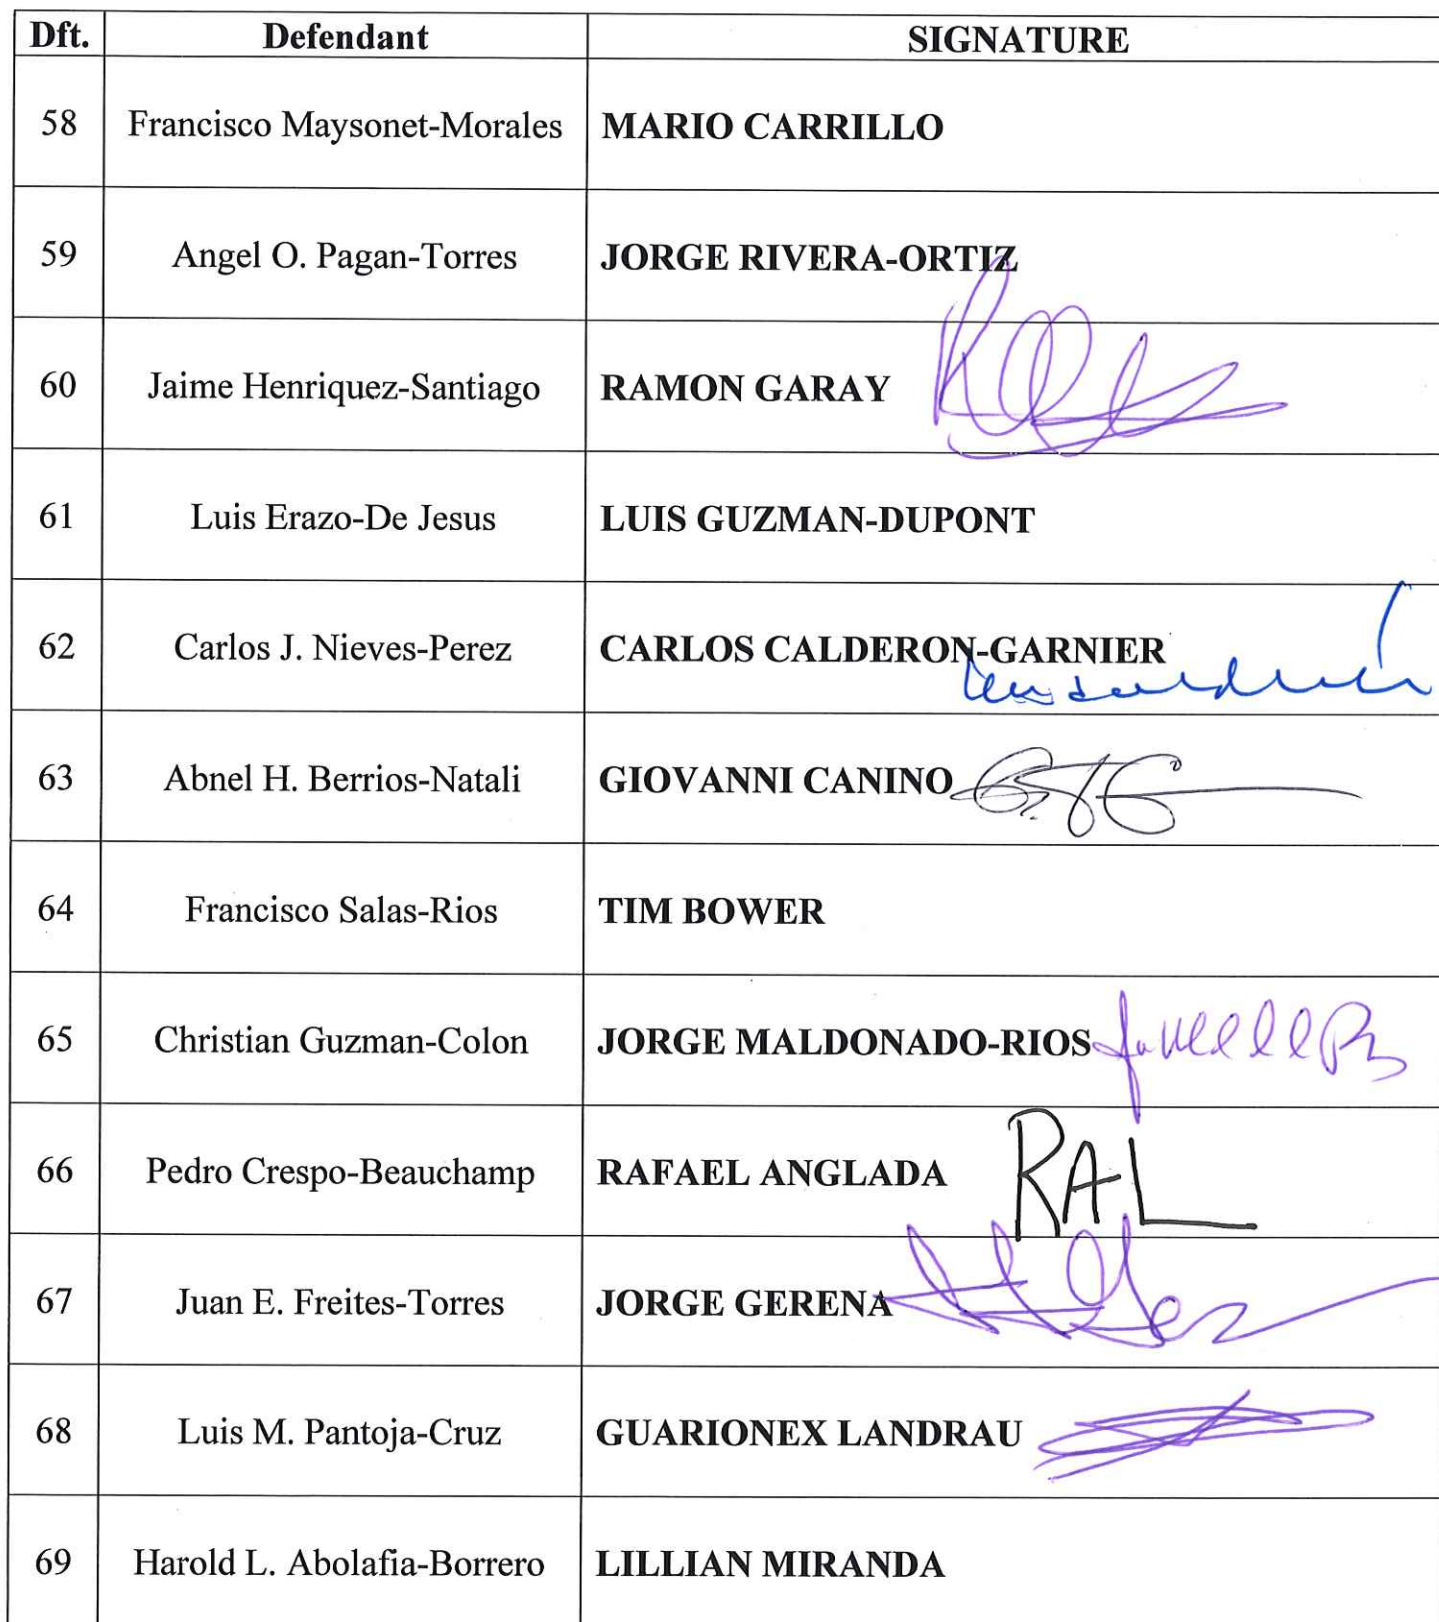 Dft. Defendant SIGNATURE
58 Francisco Maysonet-Morales MARIO CARRILLO
59 Angel O. Pagan-Torres JORGE RIVERA-ORTIZ
60 Jaime Henriquez-Santiago RAMON GARAY
61 Luis Erazo-De Jesus LUIS GUZMAN-DUPONT
62 Carlos J. Nieves-Perez CARLOS CALDERON-GARNIER
63 Abnel H. Berrios-Natali GIOVANNI CANINO
64 Francisco Salas-Rios TIM BOWER
65 Christian Guzman-Colon JORGE MALDONADO-RIOS
66 Pedro Crespo-Beauchamp RAFAEL ANGLADA RAL
67 Juan E. Freites-Torres JORGE GERENA
68 Luis M. Pantoja-Cruz GUARIONEX LANDRAU
69 Harold L. Abolafia-Borrero LILLIAN MIRANDA